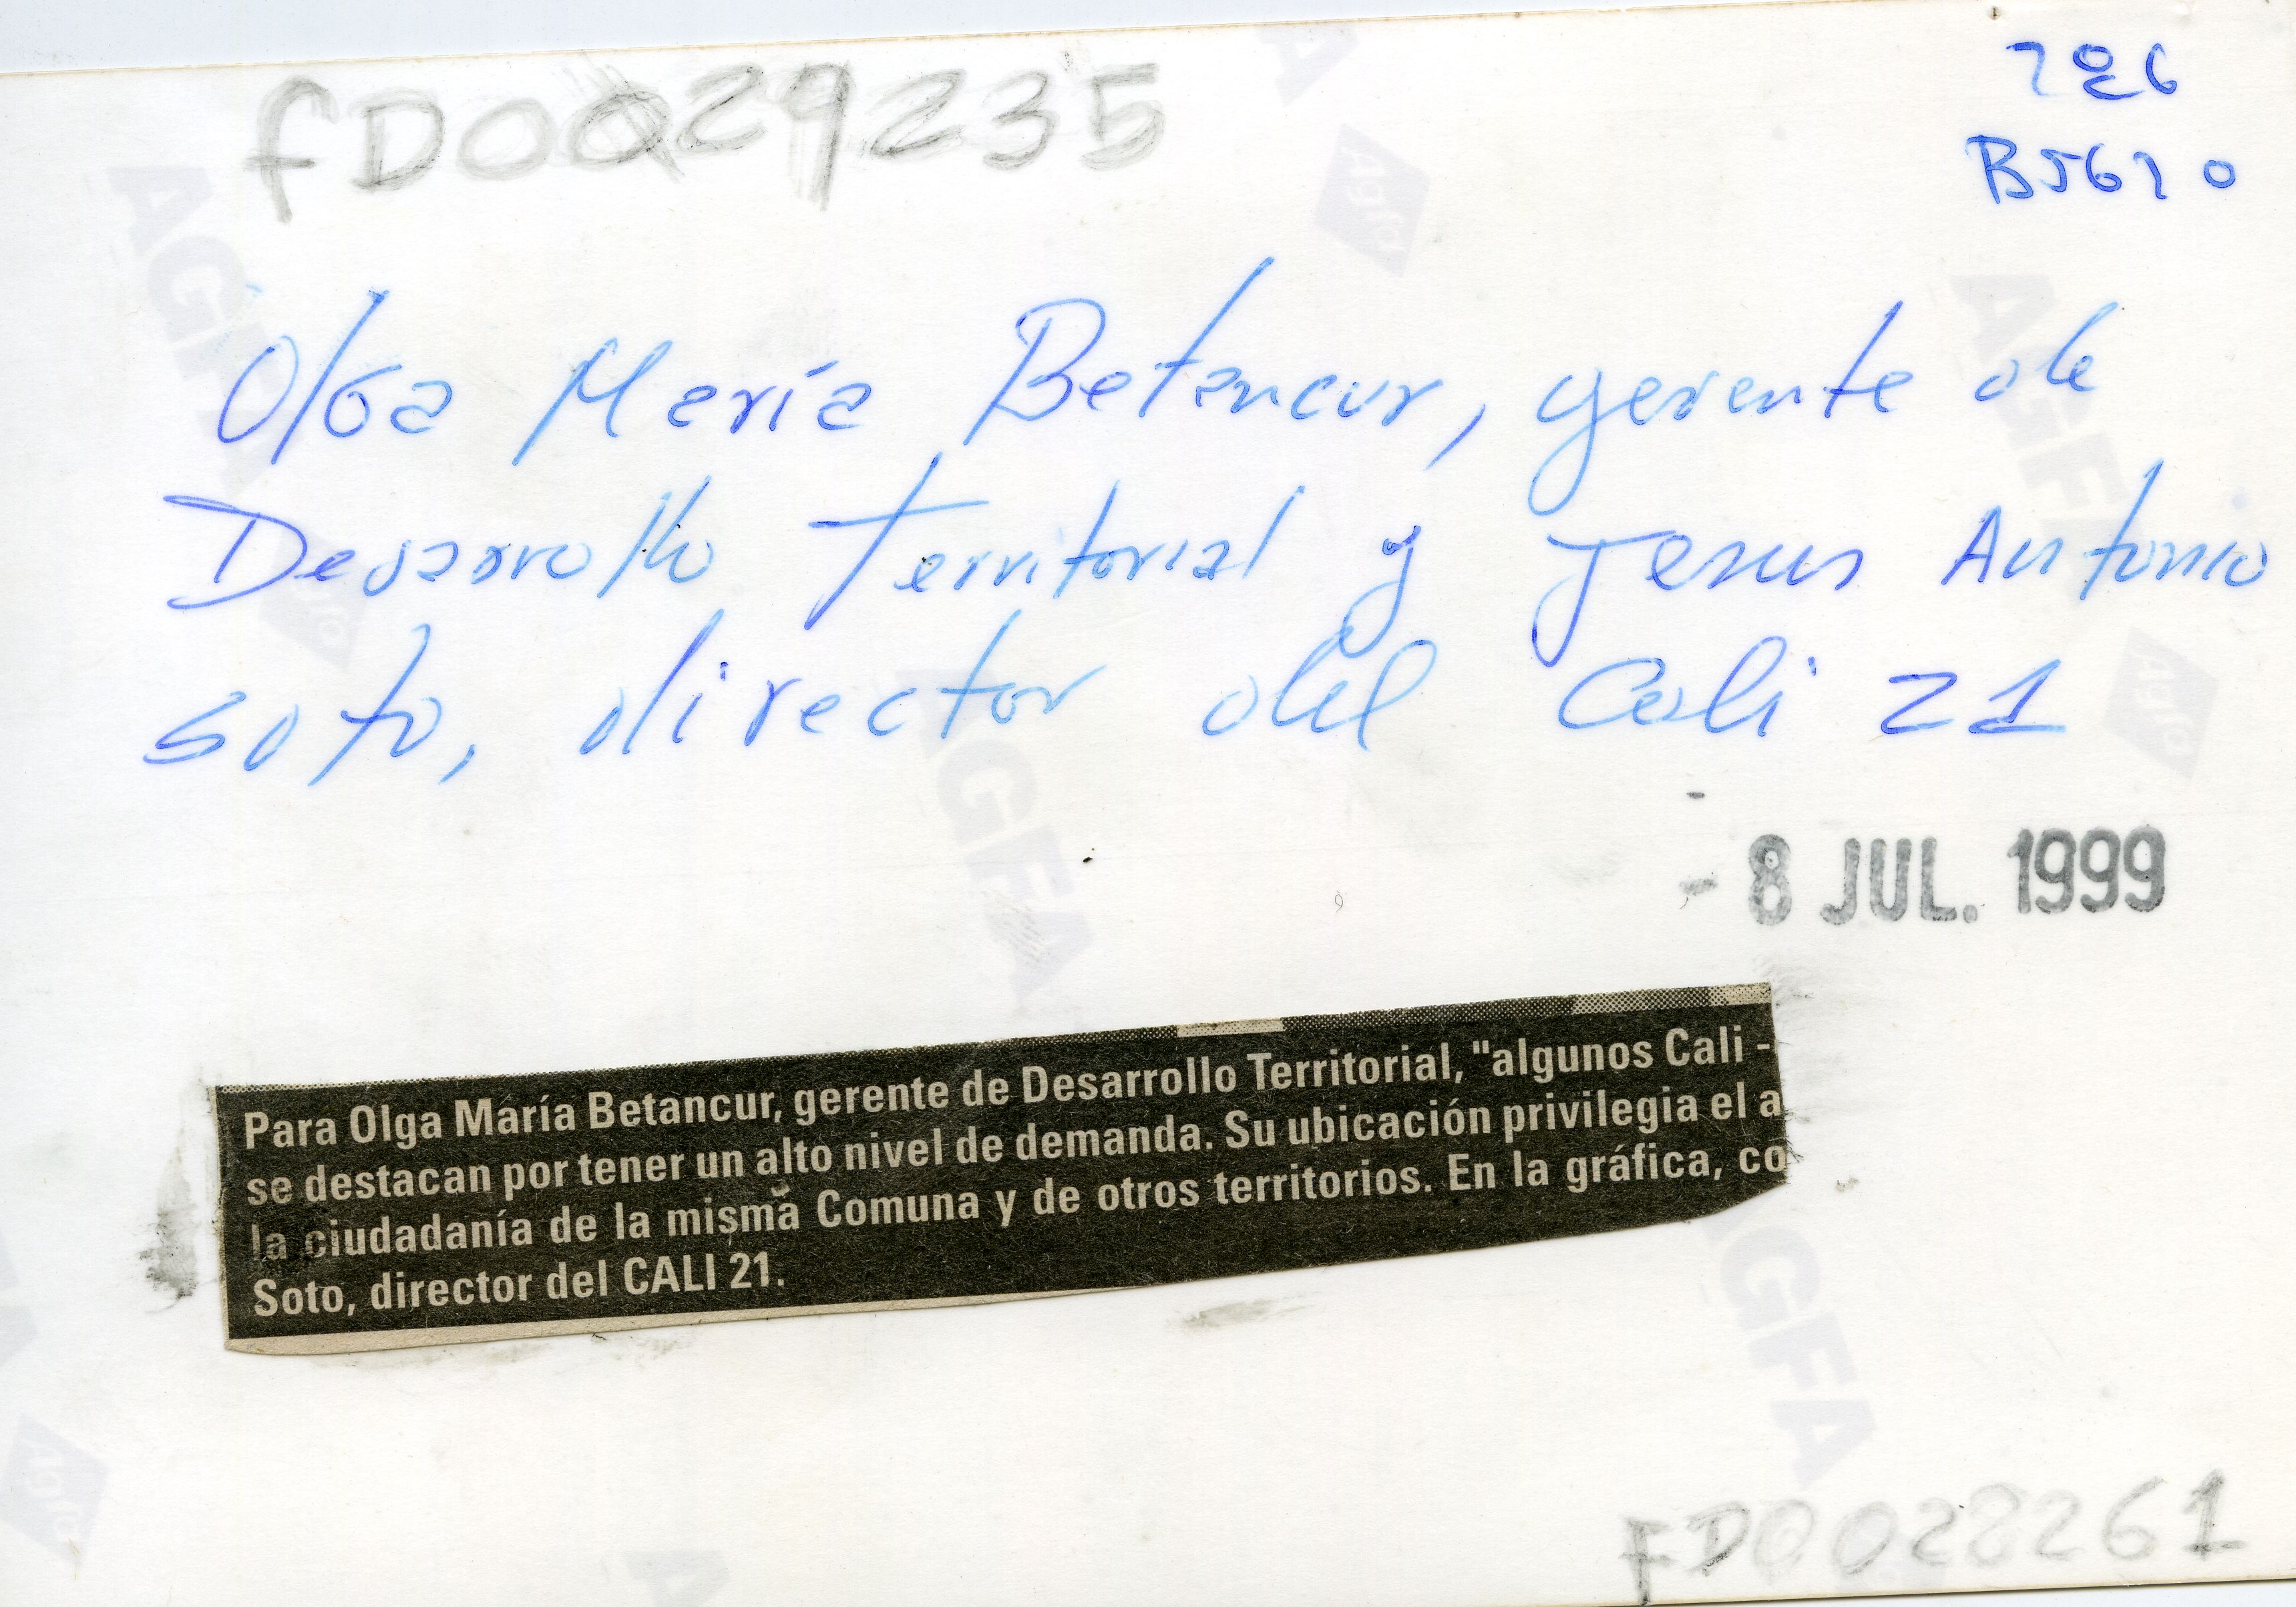 FD0029235
726
B5610
Olga María Betancur, gerente de
Desarrollo Territorial y Jesus Antonio
Soto, director del Cali 21
- 8 JUL. 1999
Para Olga María Betancur, gerente de Desarrollo Territorial, "algunos Cali -
se destacan por tener un alto nivel de demanda. Su ubicación privilegia el a
la ciudadanía de la misma Comuna y de otros territorios. En la gráfica, co
Soto, director del CALI 21.
FD0028261
AGFA